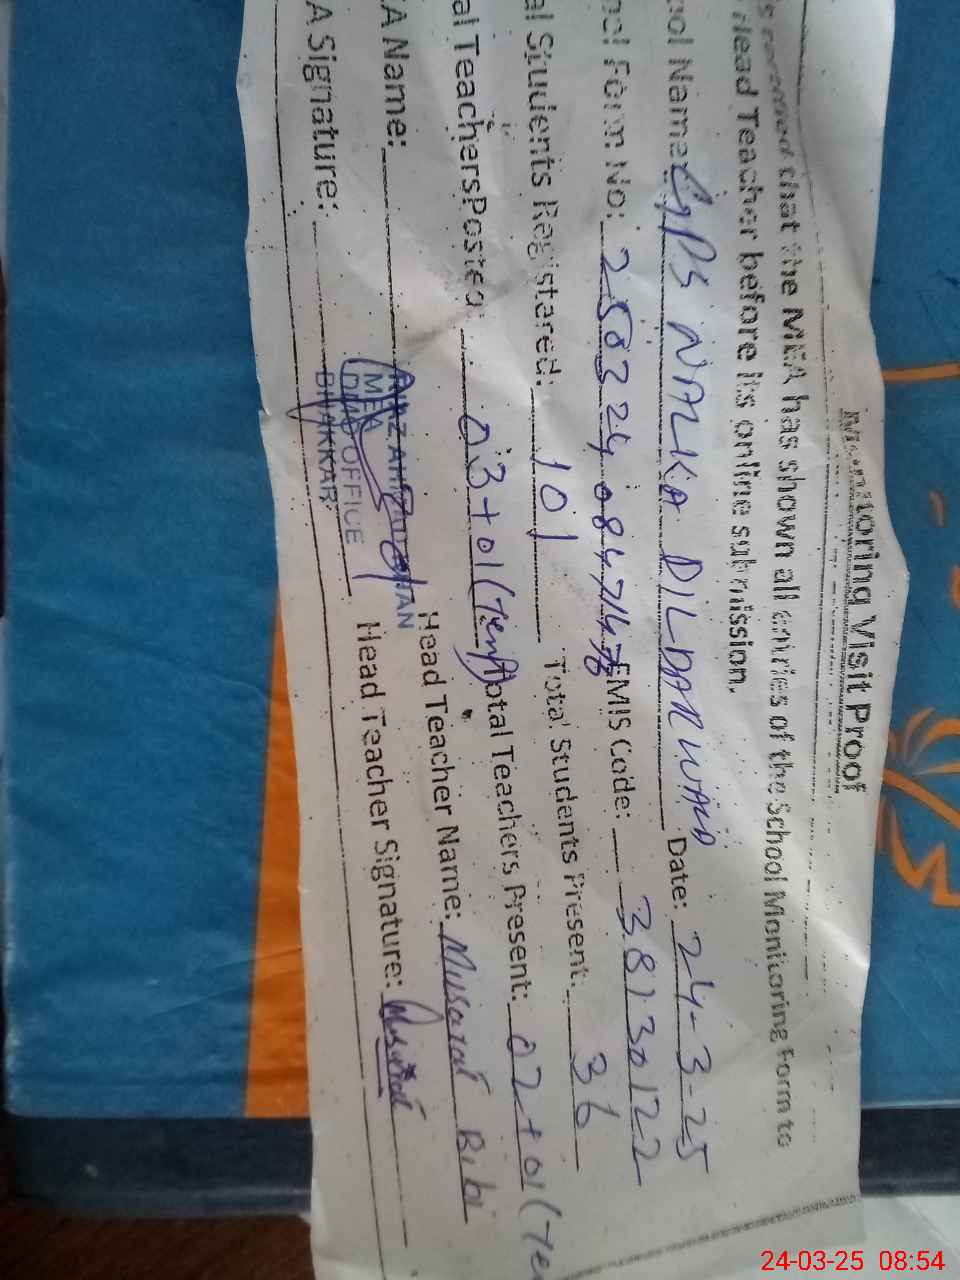 Monitoring Visit Proof
that the MEA has shown all entries of the School Monitoring Form to
Head Teacher before its online submission.
ool Name: GPS NALKA DILDARWALA Date: 24-3-25
ool Form No: EMIS Code: 38130122
al Students Registered: 101 Total Students Present: 36
al TeachersPosted: 03+01(Temp) Total Teachers Present: 02+01(Te
EA Name: Head Teacher Name: Musarat Bibi
A Signature: Head Teacher Signature: Musarat
MEA
DMO OFFICE
BHAKKAR
24-03-25 08:54